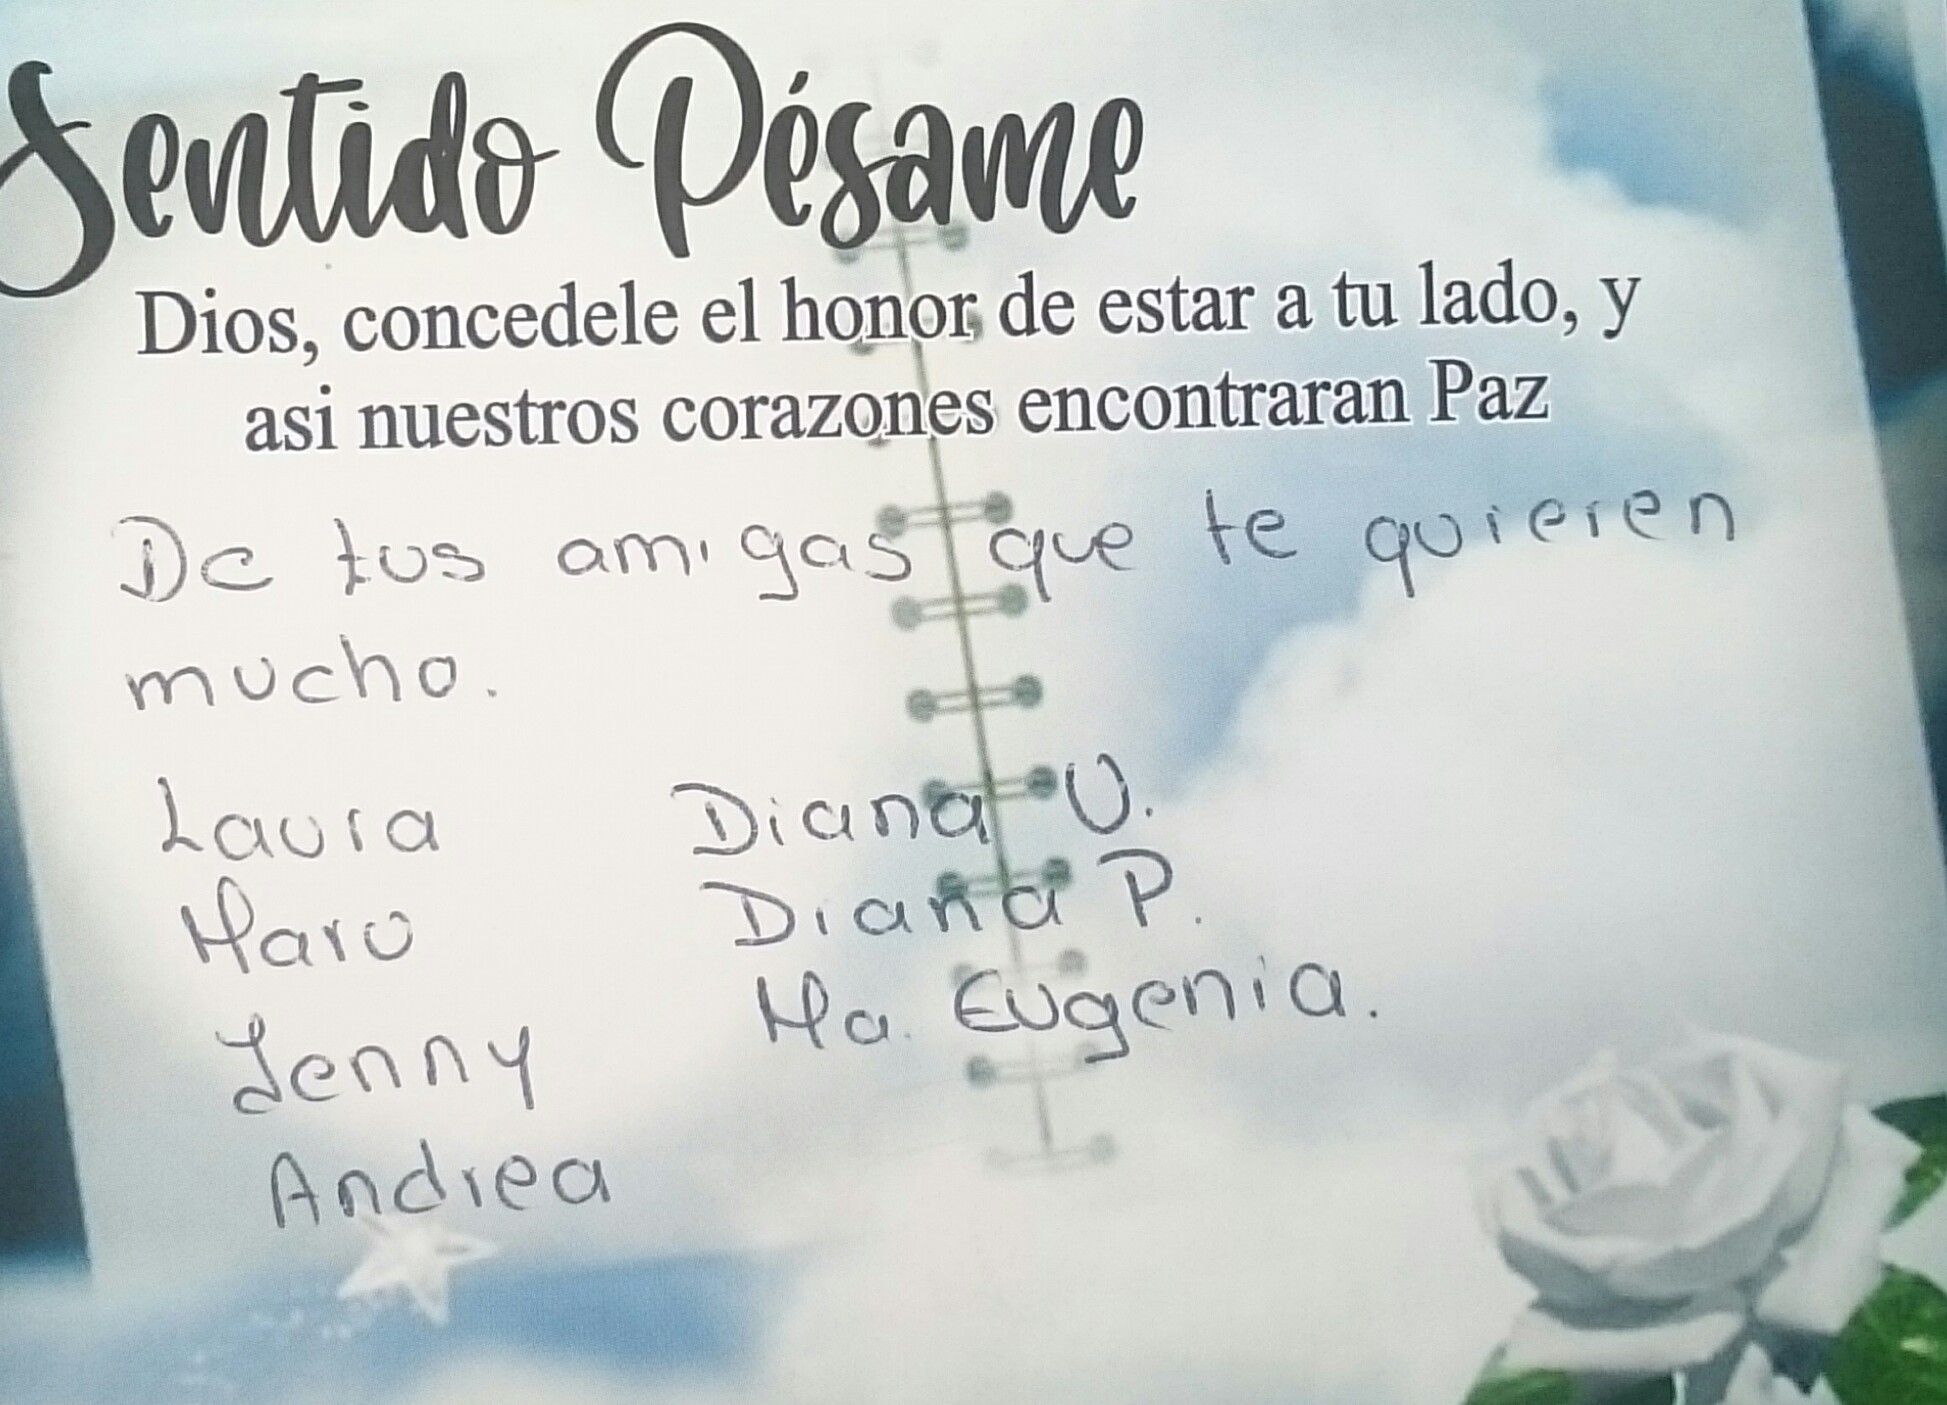 Sentido Pésame
Dios, concedele el honor de estar a tu lado, y
asi nuestros corazones encontraran Paz
De tus amigas que te quieren
mucho.
Laura
Maru
Jenny
Andrea
Diana U.
Diana P.
Ma. Eugenia.